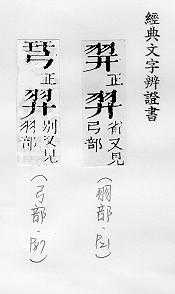 經典文字辨證書
正
羿省又見弓部
(羽部
正
羿別又見羽部
(弓部